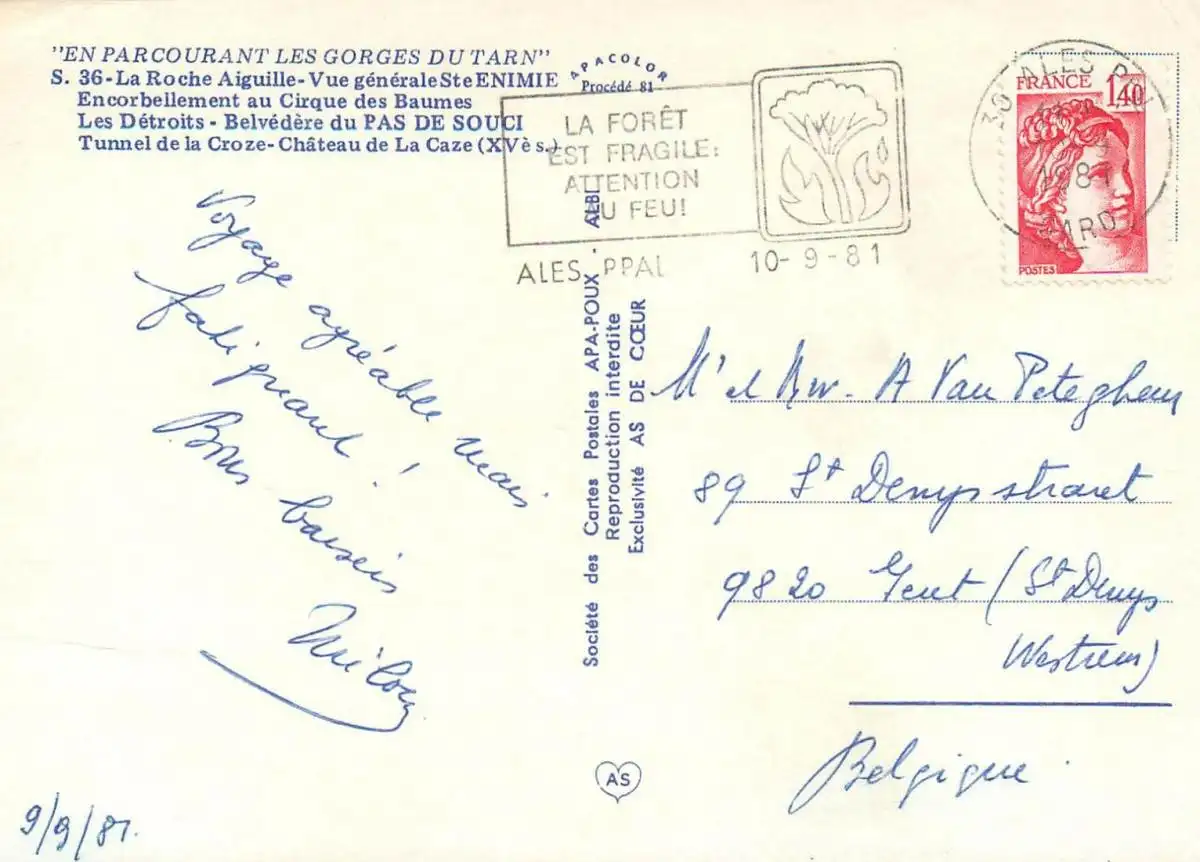 "EN PARCOURANT LES GORGES DU TARN"
S. 36-La Roche Aiguille-Vue générale Ste ENIMIE
Encorbellement au Cirque des Baumes
Les Détroits - Belvédère du PAS DE SOUCI
Tunnel de la Croze-Château de La Caze (XVè s.)
APACOLOR
Procédé 81
LA FORÊT
EST FRAGILE:
ATTENTION
AU FEU!
ALES PPAL
10-9-81
30 ALES
1981
GARD
FRANCE
1,40
POSTES
Voyage agréable mais
fatiguant!
Bons baisers
9/9/81.
Société des Cartes Postales APA-POUX - ALBI
Reproduction interdite
Exclusivité AS DE CŒUR
AS
Mr et Mw. A Van Peteghem
89 St Denysstraat
9820 Gent (St Denys
Westrem)
Belgique